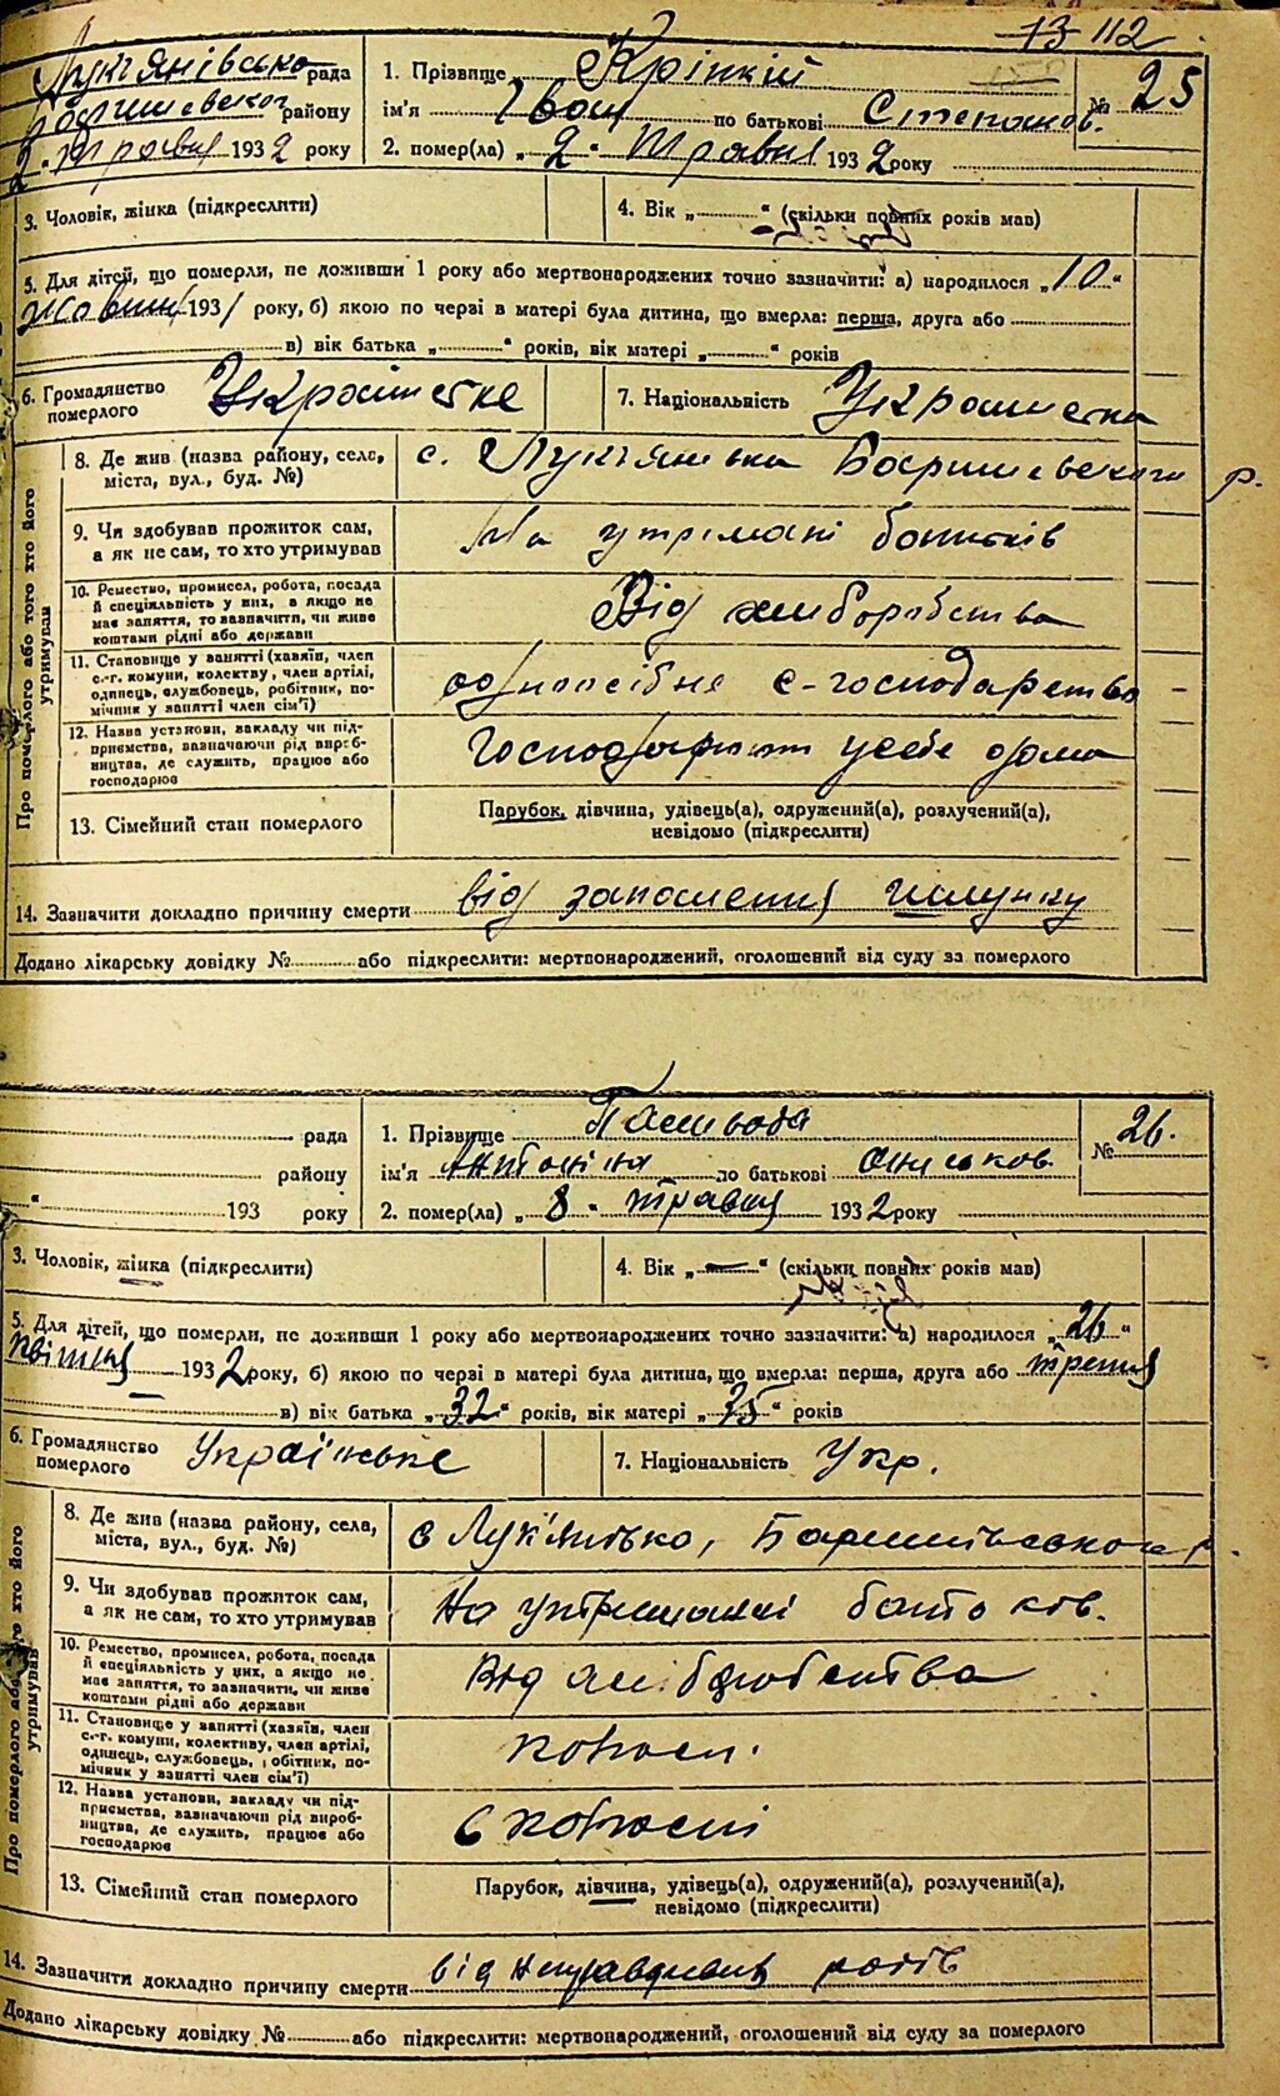 13 112
Лук'янівська рада
Баришевського району
2. Травня 1932 року
1. Прізвище Кріпкій
ім'я Іван по батькові Степанов.
№ 25
2. помер(ла) „ 2 " Травня 1932 року
3. Чоловік, жінка (підкреслити)
4. Вік „ " (скільки повних років мав)
5. Для дітей, що померли, не доживши 1 року або мертвонароджених точно зазначити: а) народилося „10"
жовтня 1931 року, б) якою по черзі в матері була дитина, що вмерла: перша, друга або
в) вік батька „ " років, вік матері „ " років
6. Громадянство
померлого
Українське
7. Національність
Про померлого або того хто його
утримував
8. Де жив (назва району, села,
міста, вул., буд. №)
с. Лук'янівка Баришевського р.
9. Чи здобував прожиток сам,
а як не сам, то хто утримував
На утримані батьків
10. Ремество, промисел, робота, посада
й спеціяльність у них, а якщо не
має заняття, то зазначити, чи живе
коштами рідні або держави
Від хліборобства
11. Становище у занятті (хазяїн, член
с.-г. комуни, колективу, член артілі,
одинець, службовець, робітник, по-
мічник у занятті член сім'ї)
одноосібне с-господарство
12. Назва установи, закладу чи під-
приємства, зазначаючи рід вироб-
ництва, де служить, працює або
господарює
у себе дома
13. Сімейний стан померлого
Парубок, дівчина, удівець(а), одружений(а), розлучений(а),
невідомо (підкреслити)
14. Зазначити докладно причину смерти від запалення шлунку
Додано лікарську довідку № або підкреслити: мертвонароджений, оголошений від суду за померлого
рада
району
" 193 року
1. Прізвище
ім'я Антоніна по батькові
№ 26.
2. помер(ла) „ 8 " травня 1932 року
3. Чоловік, жінка (підкреслити)
4. Вік „—" (скільки повних років мав)
5. Для дітей, що померли, не доживши 1 року або мертвонароджених точно зазначити: а) народилося „26"
квітня 1932 року, б) якою по черзі в матері була дитина, що вмерла: перша, друга або третя
в) вік батька „32" років, вік матері „35" років
6. Громадянство
померлого
Українське
7. Національність Укр.
Про померлого або того хто його
утримував
8. Де жив (назва району, села,
міста, вул., буд. №)
с Лук'янівка, Баришівського р.
9. Чи здобував прожиток сам,
а як не сам, то хто утримував
На утриманні батьків.
10. Ремество, промисел, робота, посада
й спеціяльність у них, а якщо не
має заняття, то зазначити, чи живе
коштами рідні або держави
Від хліборобства
11. Становище у занятті (хазяїн, член
с.-г. комуни, колективу, член артілі,
одинець, службовець, робітник, по-
мічник у занятті член сім'ї)
колгосп.
12. Назва установи, закладу чи під-
приємства, зазначаючи рід вироб-
ництва, де служить, працює або
господарює
в колгоспі
13. Сімейний стан померлого
Парубок, дівчина, удівець(а), одружений(а), розлучений(а),
невідомо (підкреслити)
14. Зазначити докладно причину смерти від
Додано лікарську довідку № або підкреслити: мертвонароджений, оголошений від суду за померлого